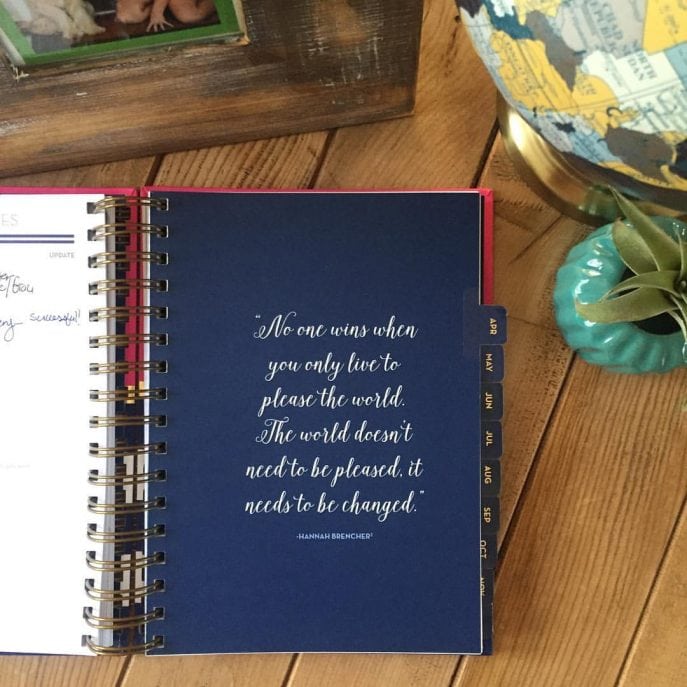 ES
UPDATE
successful!
"No one wins when
you only live to
please the world.
The world doesn't
need to be pleased, it
needs to be changed."
-HANNAH BRENCHER²
APR
MAY
JUN
JUL
AUG
SEP
OCT
NOV